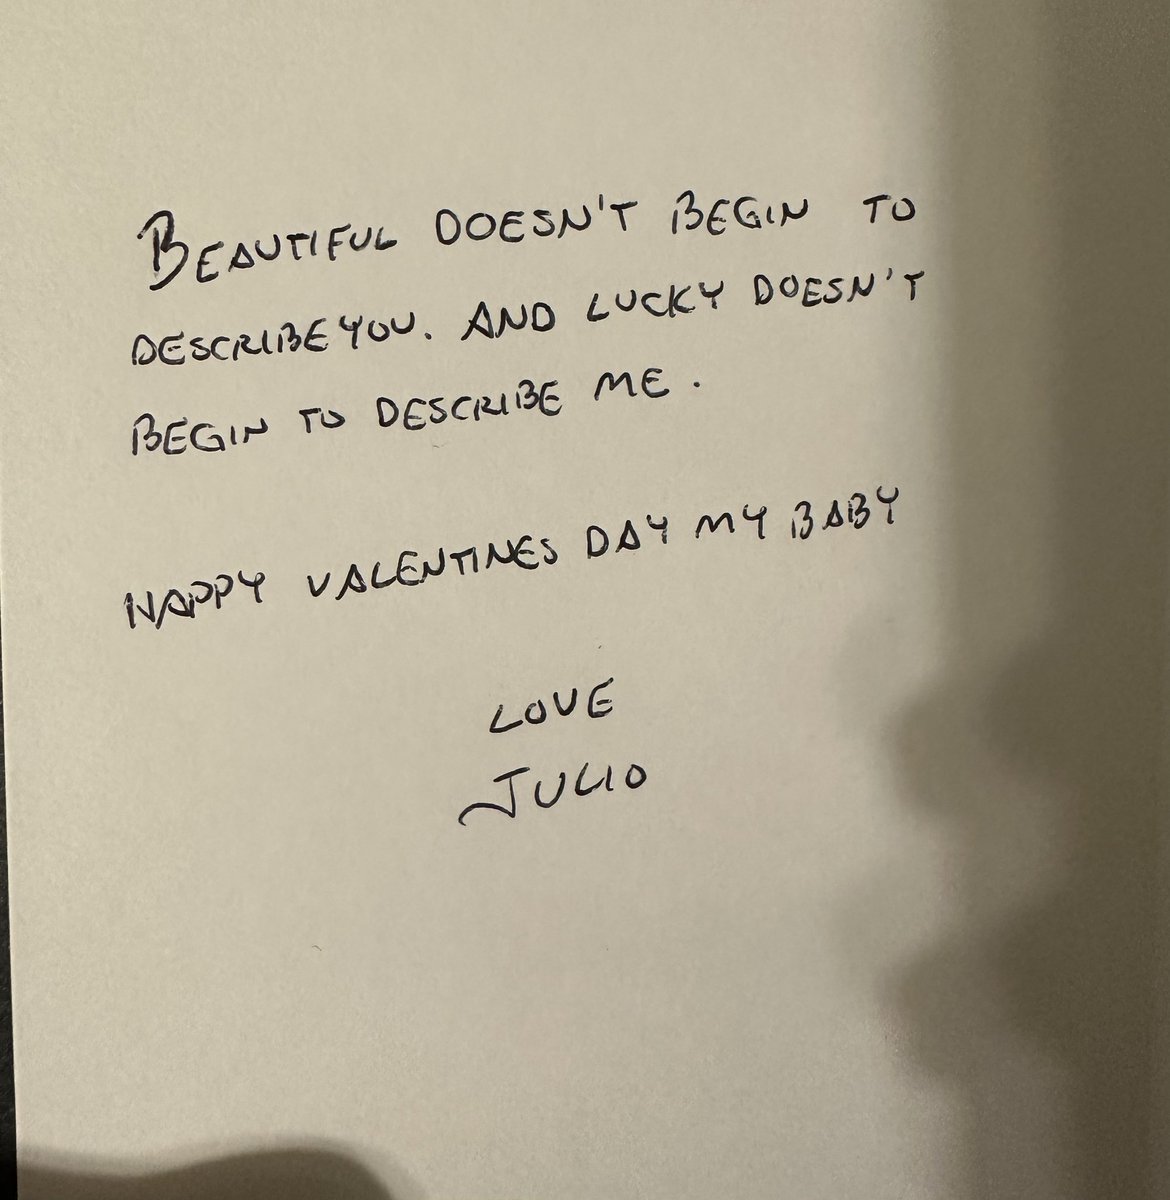 BEAUTIFUL DOESN'T BEGIN TO
DESCRIBE YOU. AND LUCKY DOESN'T
BEGIN TO DESCRIBE ME.
HAPPY VALENTINES DAY MY BABY
LOVE
JULIO